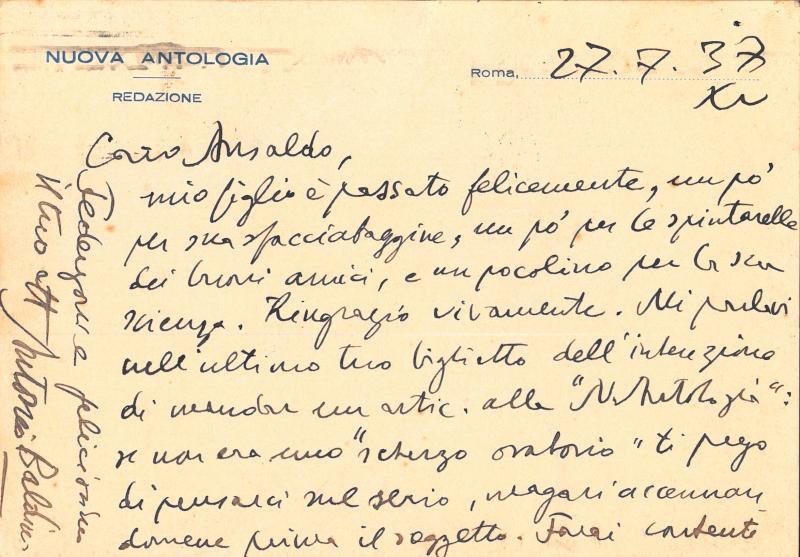 NUOVA ANTOLOGIA
REDAZIONE
Roma, 27. 7. 37
XV
Caro Ansaldo,
mio figlio è passato felicemente, un po'
per sua sfacciataggine, un po' per le spintarelle
dei buoni amici, e un pocolino per la sua
scienza. Ringrazio vivamente. Mi parlavi
nell'ultimo tuo biglietto dell'intenzione
di mandar un artic. alla "N. Antologia":
se non era uno "scherzo oratorio" ti prego
di pensarci sul serio, magari accennan
domene prima il soggetto. Farai contento
Federzoni e felicissimo
il tuo aff Antonio Baldini